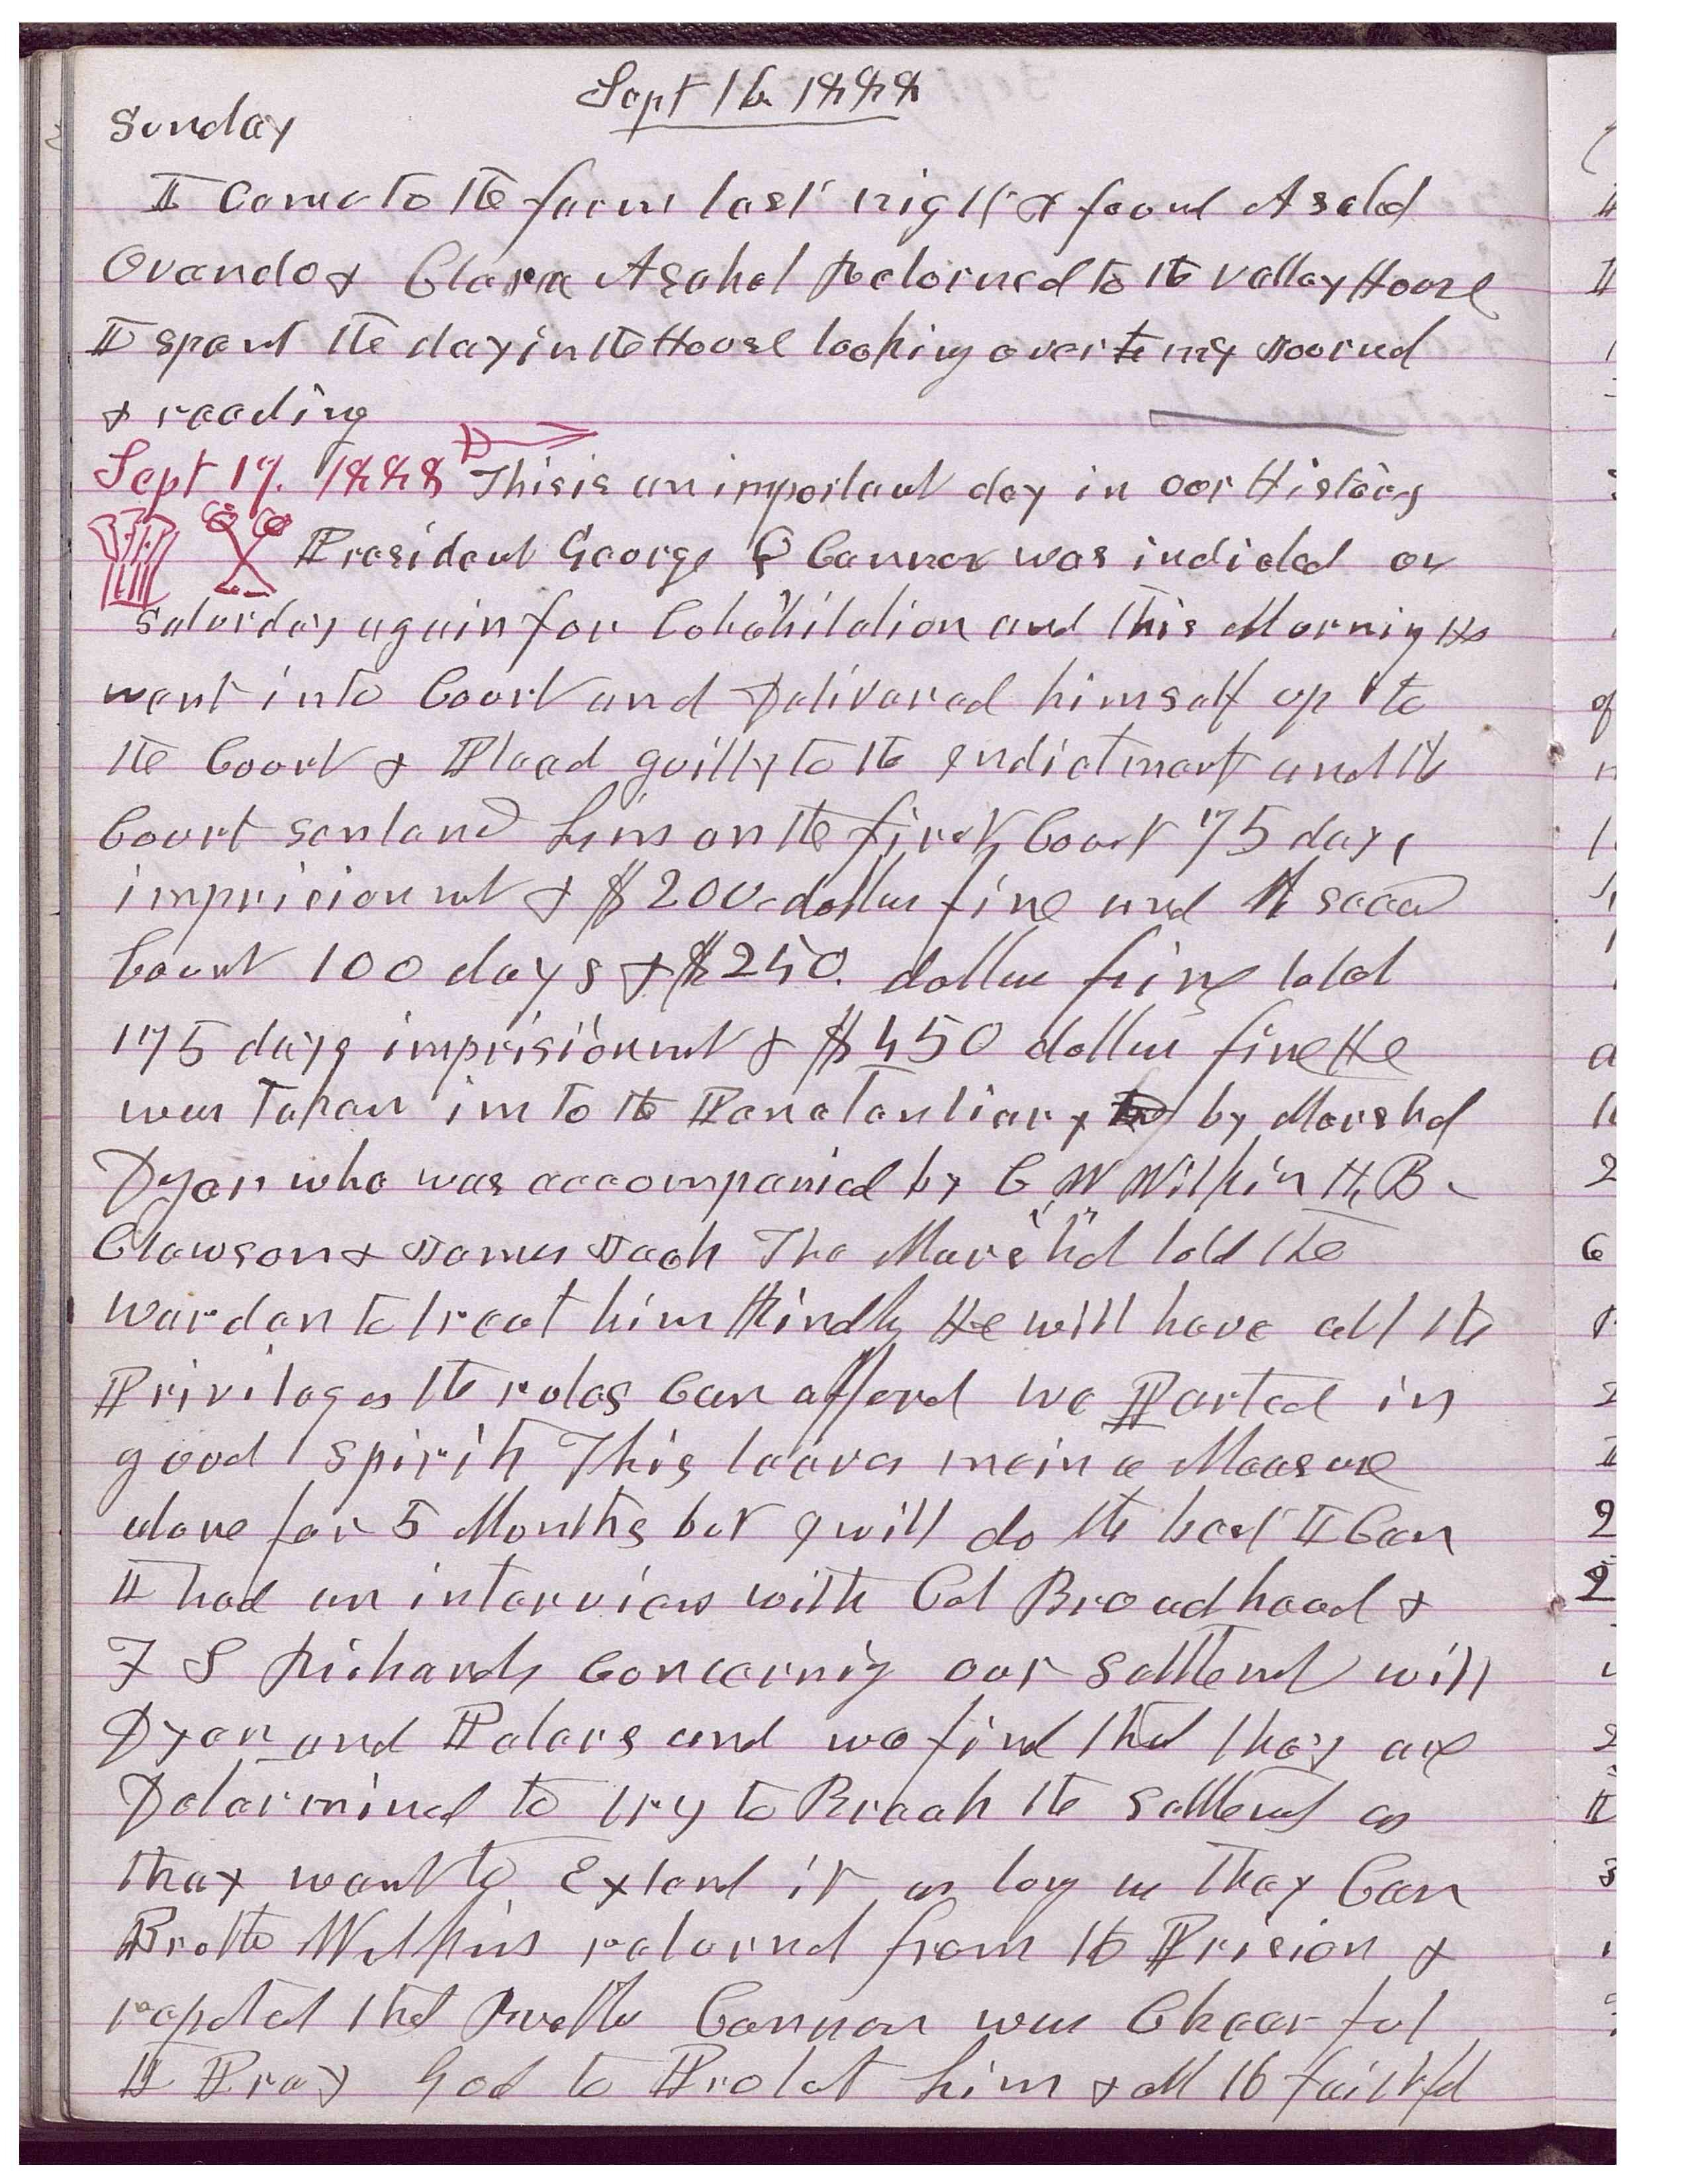 Sept 16 1888
Sunday
I Came to the farm last night & found Asahel
Ovando & Clara Asahel Returned to the Valley House
I spent the day in the House looking over my Journal
& reading
Sept 17. 1888 This is an important day in our History
President George Q Cannon was indicted on
saturday again for Cohabitation and this Morning He
went into Court and Delivered himself up to
the Court & Plead guilty to the Indictment and the
Court sentand him on the first Count 75 days
imprisionmt & $200 dollar fine and the second
Count 100 days & $250. dollar fine total
175 days imprisionmt & $450 dollar fine He
was Taken in to the Penetentiary by Marshal
Dyer who was accompanied by C W Wilkin H, B.
Clawson & James Jack The Marshal told the
Warden to treat him Kindly He will have all the
Privileges the rules Can afford we Parted in
good spirits This leaves me in a Measure
alone for 5 Months but I will do the best I Can
I had an interview with Col Broadhead &
F S Richards Concerning our settlemt with
Dyer and Peters and we find that they are
Determined to try to Break the settlemt as
they want to Extend it as long as they Can
Brother Wilkins returnd from the Prision &
reported that Brother Cannon was Cheerful
I Pray God to Protect him & all the faithful